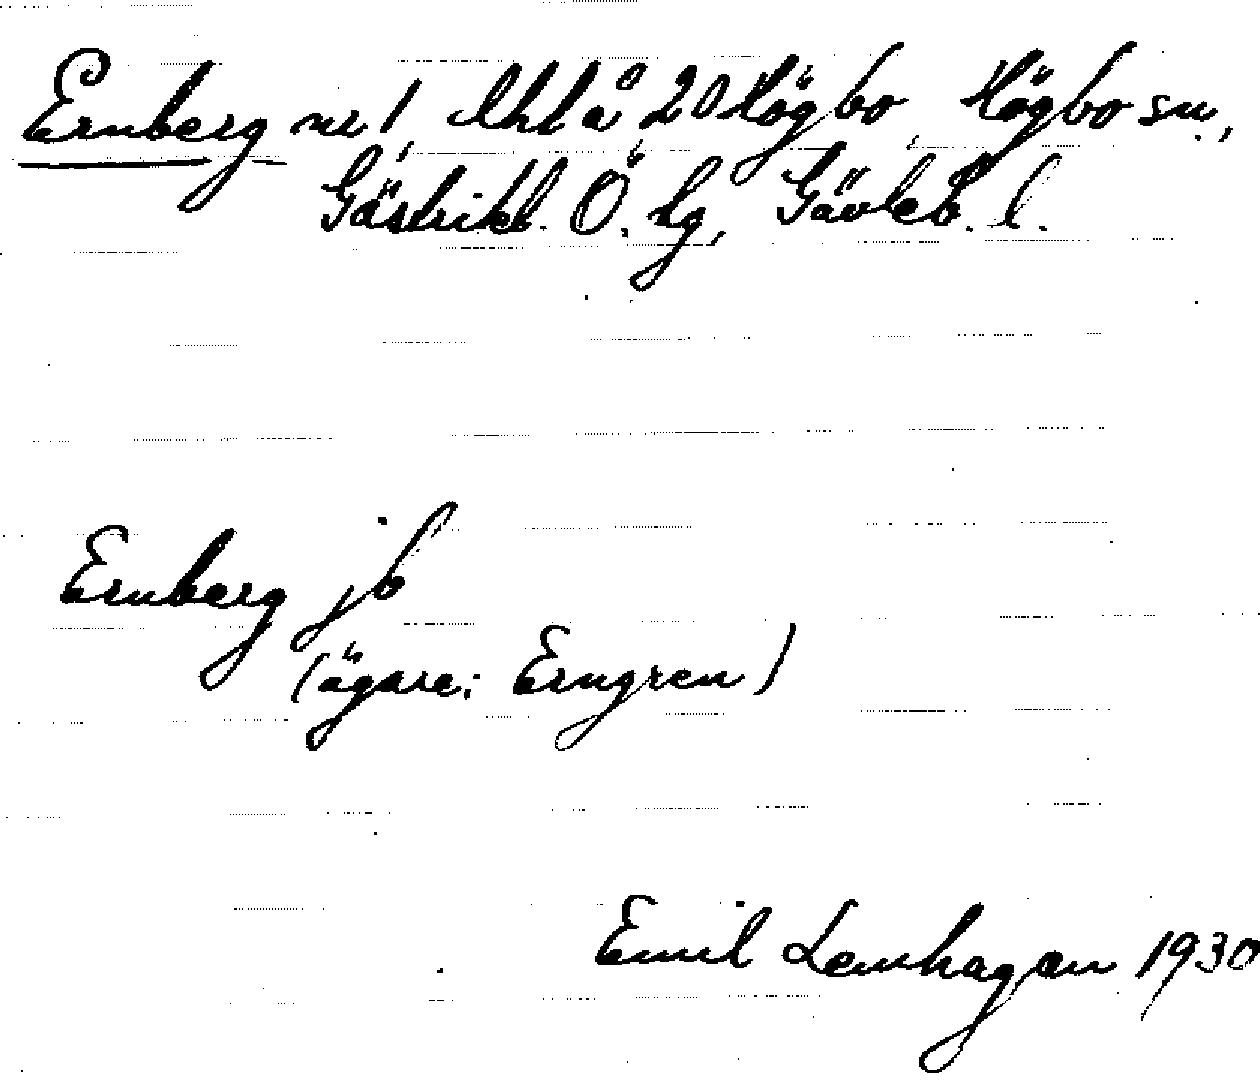 Ernberg nr 1, Uhl å 20 Högbo, Högbo sn,
Gästrikl. Ö. hg, Gävleb. l.
Ernberg jb
(ägare: Erngren)
Emil Lemhagen 1930